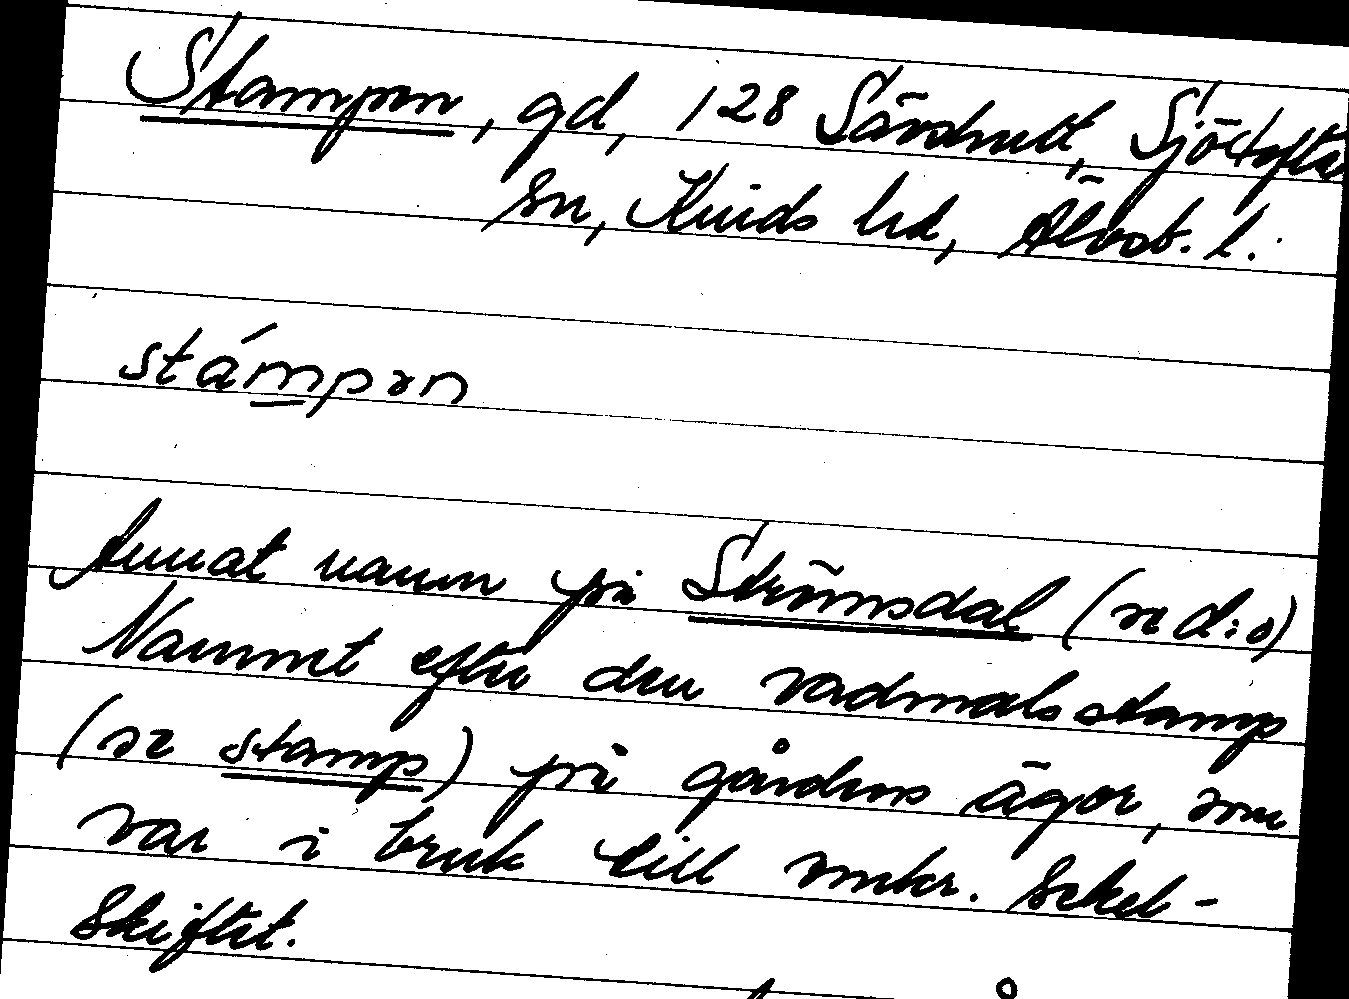 Stampen, gd, 128 Särdhult, Sjötofta
sn, Kinds hd, Älvsb. l.
stámpən
Annat namn på Strömsdal (se d:o)
Namnet efter den vadmalsstamp
(se stamp) på gårdens ägor, som
var i bruk till omkr. sekel-
skiftet.